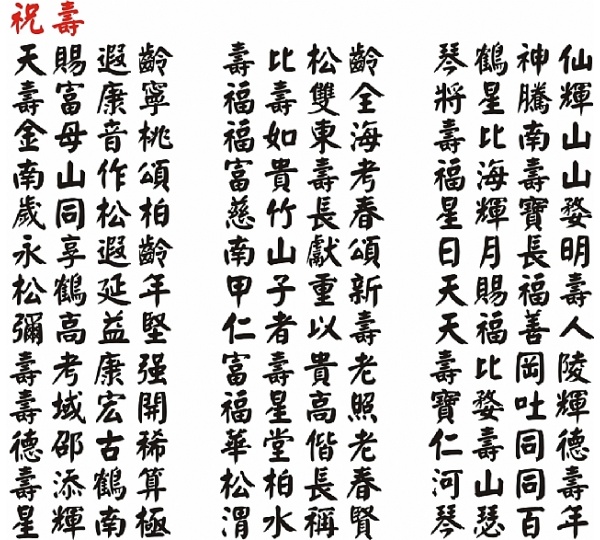 祝壽
天賜遐齡 壽比松齡 琴鶴神仙
壽富康寧 福壽雙全 將星騰輝
金母音桃 福如東海 壽比南山
南山作頌 富貴壽考 福海壽山
歲同松柏 慈竹長春 星輝寶婺
永享遐齡 南山獻頌 日月長明
松鶴延年 甲子重新 天賜福壽
彌高益堅 仁者以壽 天福善人
壽考康强 富壽貴老 壽比岡陵
壽域宏開 福星高照 寶婺吐輝
德邵古稀 華堂偕老 仁壽同德
壽添鶴算 松柏長春 河山同壽
星輝南極 渭水稱賢 琴瑟百年